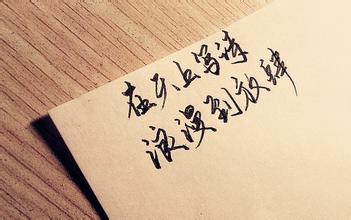 在手上写诗
浪漫到放肆